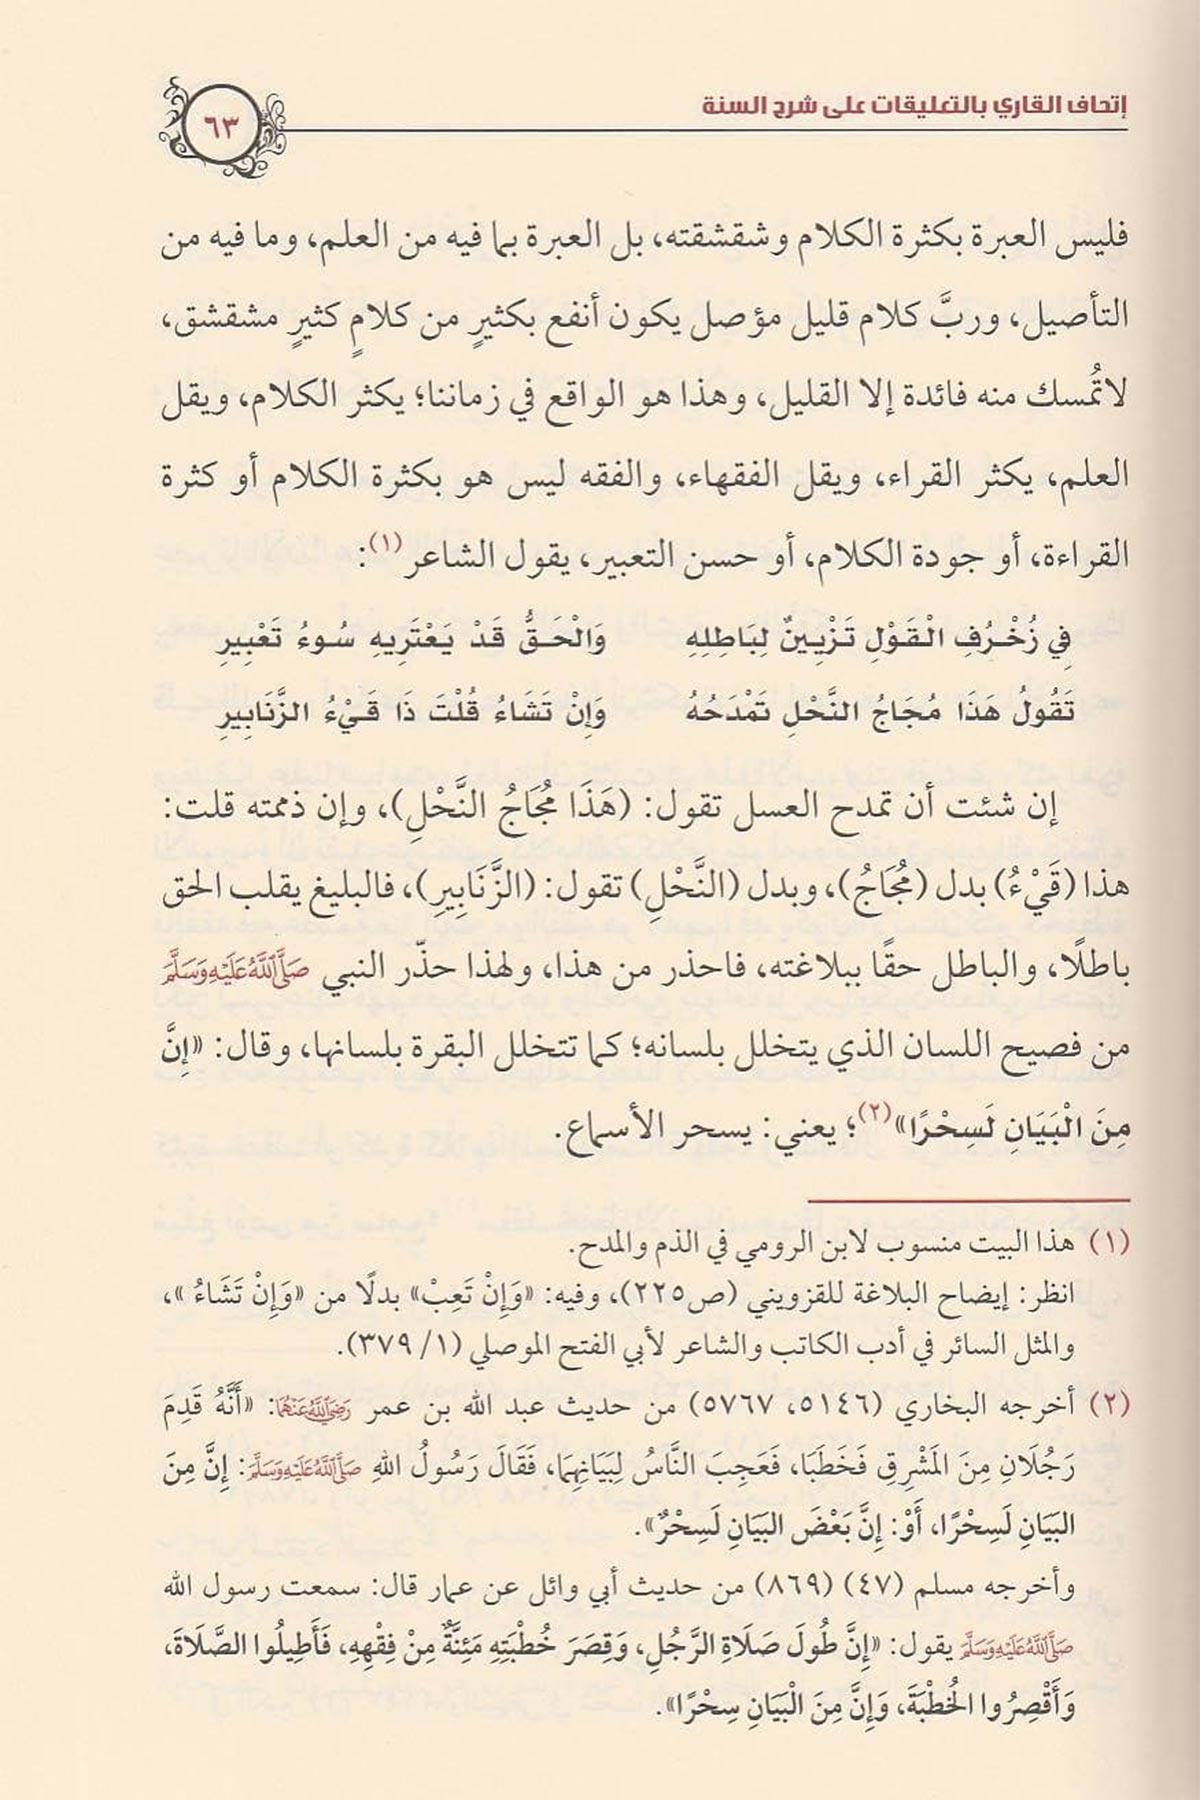 إتحاف القاري بالتعليقات على شرح السنة
٦٣
فليس العبرة بكثرة الكلام وشقشقته، بل العبرة بما فيه من العلم، وما فيه من
التأصيل، وربَّ كلام قليل مؤصل يكون أنفع بكثيرٍ من كلامٍ كثيرٍ مشقشق،
لا تُمسك منه فائدة إلا القليل، وهذا هو الواقع في زماننا؛ يكثر الكلام، ويقل
العلم، يكثر القراء، ويقل الفقهاء، والفقه ليس هو بكثرة الكلام أو كثرة
القراءة، أو جودة الكلام، أو حسن التعبير، يقول الشاعر(١):
فِي زُخْرُفِ الْقَوْلِ تَزْيِينٌ لِبَاطِلِهِ وَالْحَقُّ قَدْ يَعْتَرِيهِ سُوءُ تَعْبِيرِ
تَقُولُ هَذَا مُجَاجُ النَّحْلِ تَمْدَحُهُ وَإِنْ تَشَاءُ قُلْتَ ذَا قَيْءُ الزَّنَابِيرِ
إن شئت أن تمدح العسل تقول: (هَذَا مُجَاجُ النَّحْلِ)، وإن ذممته قلت:
هذا (قَيْءُ) بدل (مُجَاجُ)، وبدل (النَّحْلِ) تقول: (الزَّنَابِيرِ)، فالبليغ يقلب الحق
باطلًا، والباطل حقًا ببلاغته، فاحذر من هذا، ولهذا حذّر النبي صَلَّى اللَّهُ عَلَيْهِ وَسَلَّمَ
من فصيح اللسان الذي يتخلل بلسانه؛ كما تتخلل البقرة بلسانها، وقال: «إِنَّ
مِنَ الْبَيَانِ لَسِحْرًا»(٢)؛ يعني: يسحر الأسماع.
(١) هذا البيت منسوب لابن الرومي في الذم والمدح.
انظر: إيضاح البلاغة للقزويني (ص٢٢٥)، وفيه: «وَإِنْ تَعِبْ» بدلًا من «وَإِنْ تَشَاءُ »،
والمثل السائر في أدب الكاتب والشاعر لأبي الفتح الموصلي (١/ ٣٧٩).
(٢) أخرجه البخاري (٥١٤٦، ٥٧٦٧) من حديث عبد الله بن عمر رَضِيَ اللَّهُ عَنْهُمَا: «أَنَّهُ قَدِمَ
رَجُلَانِ مِنَ المَشْرِقِ فَخَطَبَا، فَعَجِبَ النَّاسُ لِبَيَانِهِمَا، فَقَالَ رَسُولُ اللهِ صَلَّى اللَّهُ عَلَيْهِ وَسَلَّمَ: إِنَّ مِنَ
البَيَانِ لَسِحْرًا، أَوْ: إِنَّ بَعْضَ البَيَانِ لَسِحْرٌ».
وأخرجه مسلم (٤٧) (٨٦٩) من حديث أبي وائل عن عمار قال: سمعت رسول الله
صَلَّى اللَّهُ عَلَيْهِ وَسَلَّمَ يقول: «إِنَّ طُولَ صَلَاةِ الرَّجُلِ، وَقِصَرَ خُطْبَتِهِ مَئِنَّةٌ مِنْ فِقْهِهِ، فَأَطِيلُوا الصَّلَاةَ،
وَأَقْصِرُوا الخُطْبَةَ، وَإِنَّ مِنَ الْبَيَانِ سِحْرًا».